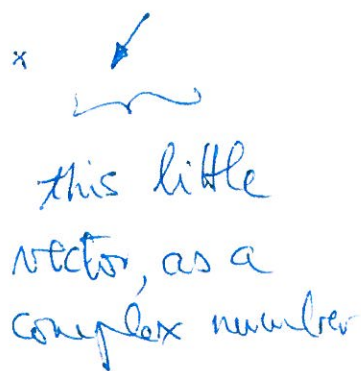 x
this little
vector, as a
complex number